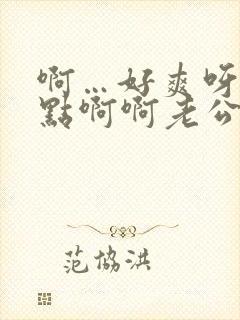 啊…好爽呀
點啊啊老公
范協洪